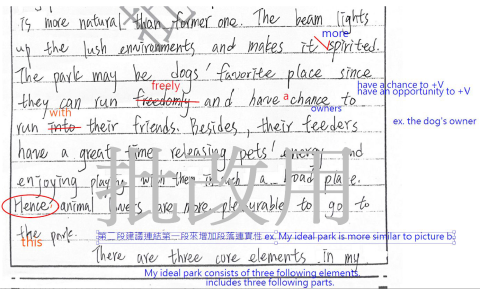 is more natural than former one. The beam lights
more
up the lush environments and makes it spirited.
The park may be dogs' favorite place since
freely
have a chance to +V
they can run freedomly and have a chance to
have an opportunity to +V
with
owners
run into their friends. Besides, their feeders
ex. the dog's owner
have a great time releasing pets' energy and
enjoying playing with them in such a broad place.
Hence animal lovers are more pleasurable to go to
this
the park.
第二段建議連結第一段來增加段落連貫性 ex. My ideal park is more similar to picture b.
There are three core elements in my
My ideal park consists of three following elements.
includes three following parts.
批改用